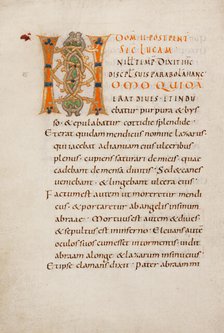 DOM II POST PENT
SEC LUCAM
IN ILL TEMP DIXIT IHC
DISCPLS SUIS PARABOLA HANC
HOMO QUIDA
ERAT DIUES ET INDU
ebatur purpura & bys
so & epulabatur cottidie splendide
Et erat quidam mendicus nomine lazarus
qui iacebat ad ianuam eius ulceribus
plenus cupiens saturari de micis quae
cadebant de mensa diuitis Sed & canes
ueniebant & lingebant ulcera eius
Factum est autem ut moreretur mendi
cus & portaretur ab angelis in sinum
abrahae Mortuus est autem & diues
& sepultus est in inferno Eleuans aute
oculos suos cum esset in tormentis uidit
abraam a longe & lazarum in sinu eius
Et ipse clamans dixit pater abraam m